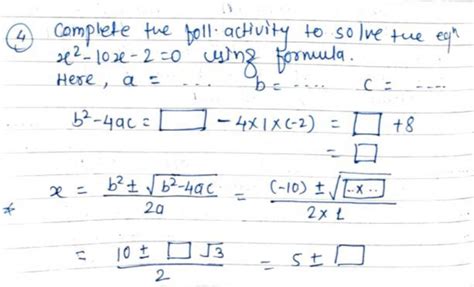 ④ Complete the foll. activity to solve the eqn
x²-10x-2=0 using formula.
Here, a = .... b = .... c = ....
b²-4ac = □ - 4×1×(-2) = □ +8
= □
* x = b² ± √b²-4ac / 2a = (-10) ± √..×.. / 2×1
= 10 ± □ √3 / 2 = 5 ± □